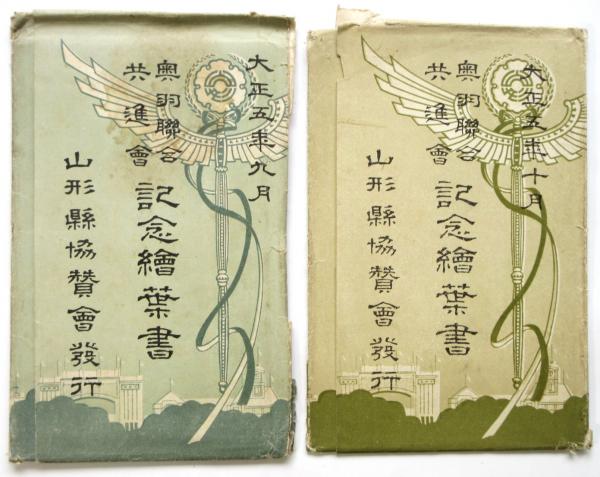 大正五年九月
奥羽聯合
共進會
記念繪葉書
山形縣協賛會發行
大正五年十月
奥羽聯合
共進會
記念繪葉書
山形縣協賛會發行